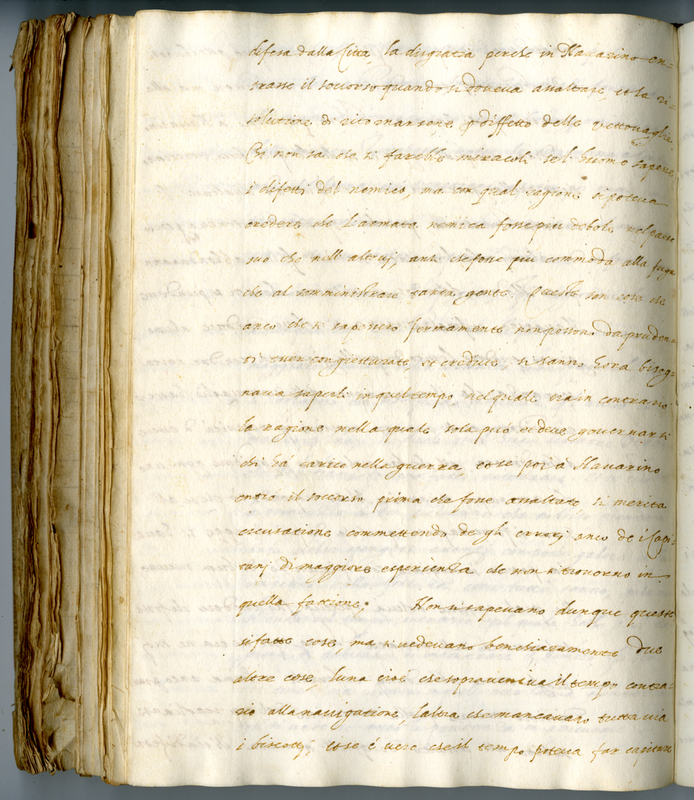 difesa dalla Città, la disgratia perche in Navarino en-
trasse il soccorso quando si doveva assaltare, et la ri-
solutione di ritornarsene p diffetto delle vettovaglie
Chi non sa che si farebbe miracoli se l'huomo sapesse
i difetti del nemico, ma con qual ragione si poteva
credere che l'armata nemica fosse piu debole nel paese
suo che nell'altrui, anzi che fosse piu commoda alla fuga
che al somministrare gente. Queste son cose che
anco che si sapessero fermamente non possono da pruden
ti esser congietturate, et credute si sanno hora, bisog-
nava saperle in quel tempo nel quale era in contrario
la ragione nella quale sola può et deve governarsi
chi há carico nella guerra, et se poi à Navarino
entrò il soccorso prima che fosse assaltato, si merita
escusatione commettendo de gli errorj anco de i Capi
tanj di maggiore esperienza che non si trovorno in
quella fattione. Non si sapevano dunque queste
sifatte cose, ma si vedevano benchiaramente due
altre cose, l'una cioè che sopraveniva il tempo contra-
rio alla navigatione, l'altra che mancavano tuttavia
i biscottj, et se é vero che il tempo poteva far capitare